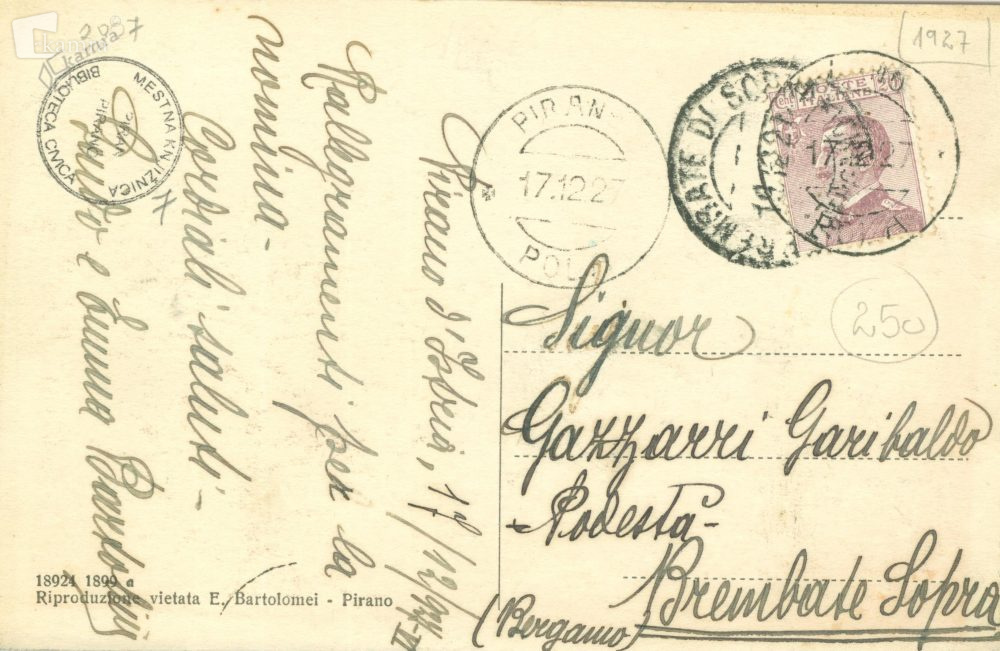 2087
kamra
MESTNA KNJIŽNICA
PIRAN
PIRANO
BIBLIOTECA CIVICA
Pirano d'Istria, 17/12/927
Rallegramenti per la
nomina-
Cordiali saluti-
e
PIRANO
17.12.27
POLA
BREMBATE DI SOPRA
POSTE ITALIANE
17.12.27
1927
250
Signor
Gazzarri Garibaldo
-Podestà-
Brembate Sopra
(Bergamo)
18924 1899 a
Riproduzione vietata E. Bartolomei - Pirano